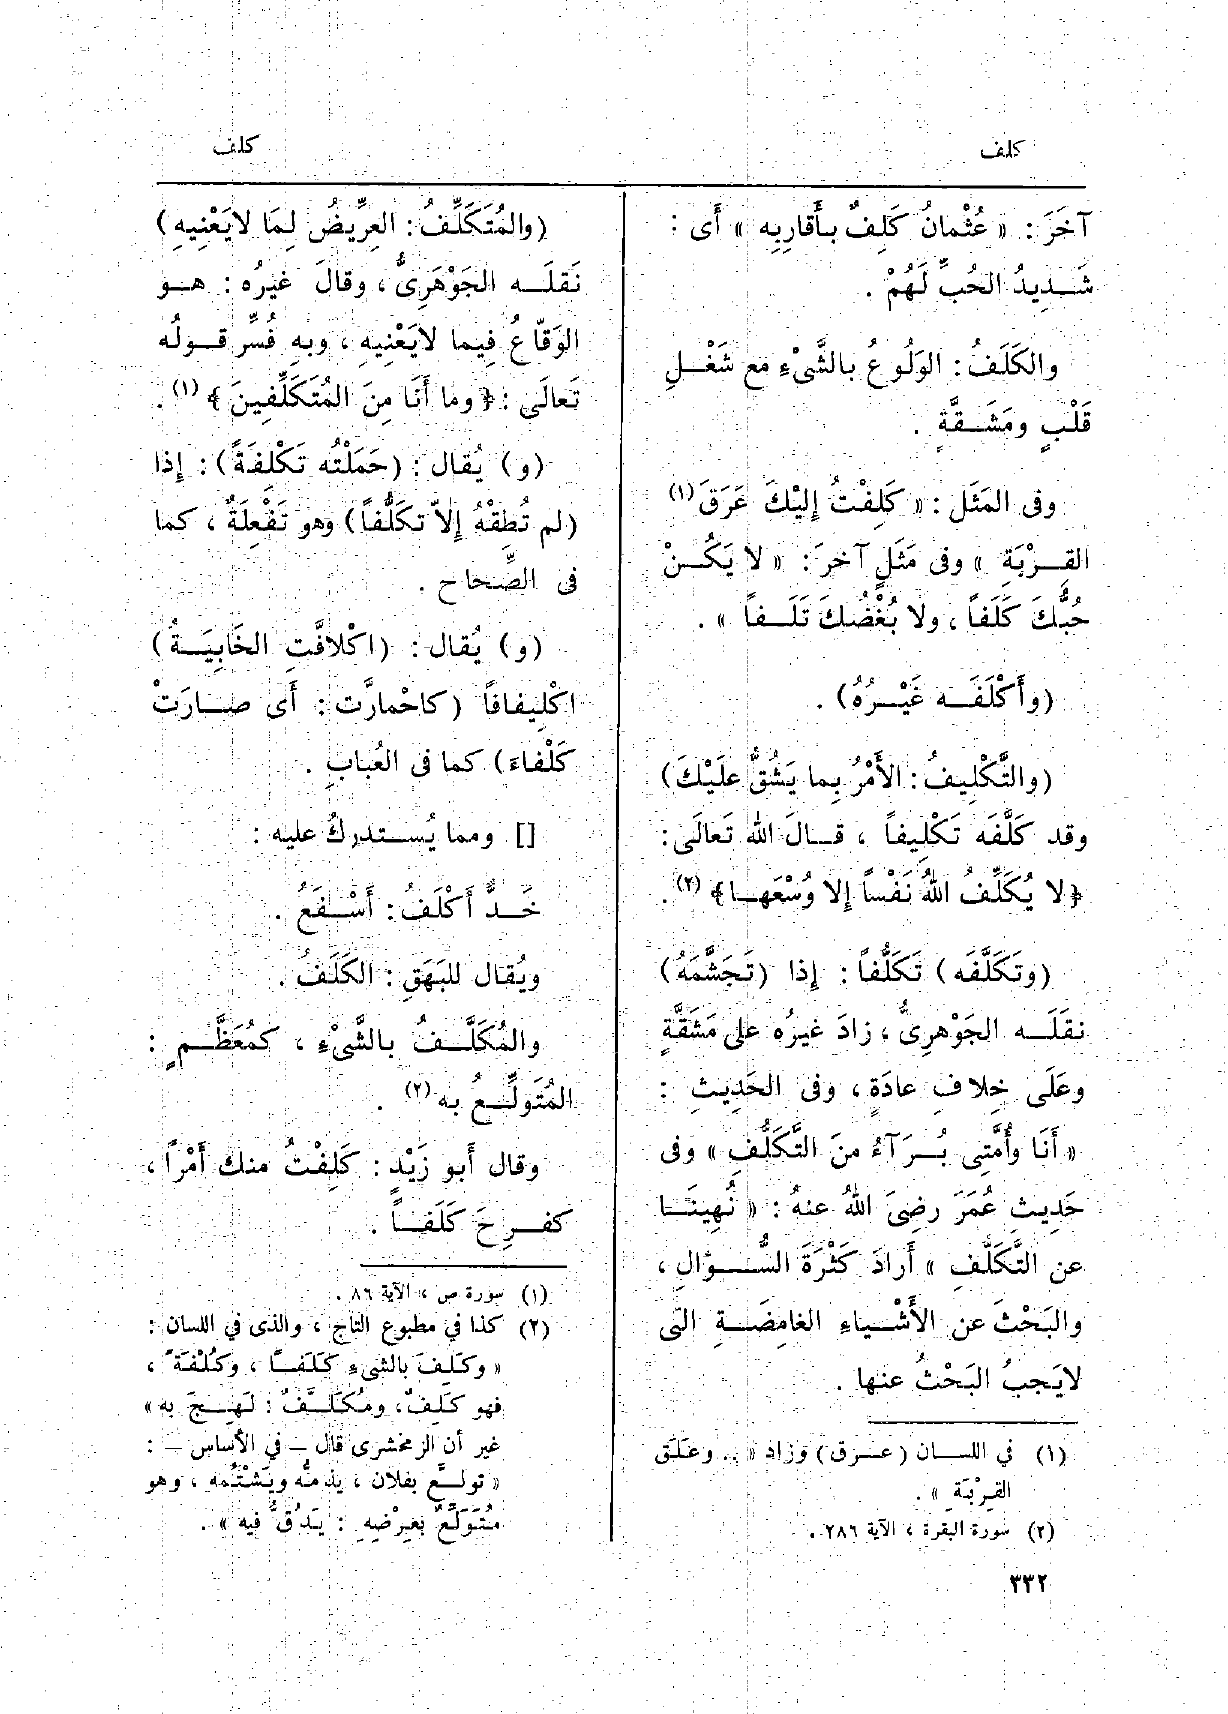 كلف
كلف
آخَرَ : « عُثْمانُ كَلِفٌ بأَقارِبِه » أَى :
شَـدِيدُ الحُبِّ لَهُمْ .
والكَلَفُ : الوَلُوعُ بالشَّىْءِ مع شَغْـلِ
قَلْبٍ ومَشَـقَّةٍ .
وفى المَثَل : « كَلِفْتُ إِلَيْكَ عَرَقَ (١)
القِـرْبَةِ » وفى مَثَلٍ آخرَ : « لا يَكُـنْ
حُبُّكَ كَلَفاً ، ولا بُغْضُكَ تَلَـفاً » .
(وأَكْلَفَـه غَيْـرُهُ) .
(والتَّكْلِيفُ : الأَمْرُ بِما يَشُقُّ علَيْكَ)
وقد كَلَّفَه تَكْلِيفاً ، قـالَ الله تَعالَى :
﴿لا يُكَلِّفُ اللهُ نَفْساً إلا وُسْعَهـا﴾ (٢) .
(وتَكَلَّفَه) تَكَلُّفاً : إذا (تَجَشَّمَهُ)
نقَلَـه الجَوْهَرِىُّ ، زادَ غيرُه على مَشَقَّةٍ
وعَلَى خِلافِ عادَةٍ ، وفى الحَدِيثِ :
« أَنَا وأُمَّتِى بُـرَآءُ منَ التَّكَلُّفِ » وفى
حَدِيثِ عُمَرَ رضِىَ اللهُ عنهُ : « نُهِينَـا
عن التَّكَلُّفِ » أَرادَ كَثْرَةَ السُّـؤالِ ،
والبَحْثَ عن الأَشْـياءِ الغامِضَـةِ التى
لايَجبُ البَحْثُ عنها .
(١) في اللسان (عـرق) وزاد « .. وعَلَق
القِرْبَةِ » .
(٢) سورة البقرة ، الآية ٢٨٦ .
(والمُتَكَلِّفُ : العِرِّيضُ لِمَا لايَعْنِيهِ)
نَقَلَـه الجَوْهَرِىُّ ، وقالَ غيرُه : هـو
الوَقّاعُ فِيما لايَعْنِيهِ ، وبهِ فُسِّر قـولُه
تَعالَى : ﴿وما أَنَا مِنَ المُتَكَلِّفِينَ﴾ (١) .
(و) يُقال : (حَمَلْتُه تَكْلِفَةً) : إذا
(لم تُطِقْهُ إِلاّ تكَلُّفاً) وهو تَفْعِلَةٌ ، كما
فى الصِّحاح .
(و) يُقال : (اكْلافَّتِ الخَابِيَـةُ)
اكْلِيفافاً (كاحْمارَّت : أَى صـارَتْ
كَلْفاءَ) كما فى العُبابِ .
[] ومما يُسـتدركُ عليه :
خَـدٌّ أَكْلَفُ : أَسْـفَعُ .
ويُقال للبَهَقِ : الكَلَفُ .
والمُكَلَّـفُ بالشَّىْءِ ، كمُعَظَّـمٍ :
المُتَولِّـعُ به (٢) .
وقال أَبو زَيْدٍ : كَلِفْتُ منك أَمْراً ،
كفـرِحَ كَلَفـاً .
(١) سورة ص ، الآية ٨٦ .
(٢) كذا في مطبوع التاج ، والذى في اللسان :
« وكَلِفَ بالشىءِ كَلَفـاً ، وكُلْفَةً ،
فهو كَلِفٌ ، ومُكَلَّـفٌ : لَهِـجَ به »
غير أن الزمخشرى قال – في الأساس – :
« تولـع بفلان ، يذمه ويَشْتُمه ، وهو
مُتَوَلِّعٌ بعِرْضِهِ : يَدُقُّ فيه » .
٣٣٢